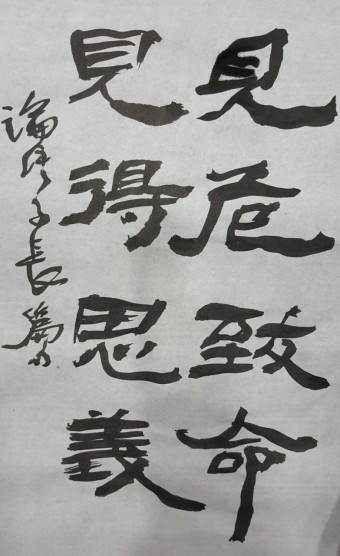 見危致命
見得思義
論語子張篇句